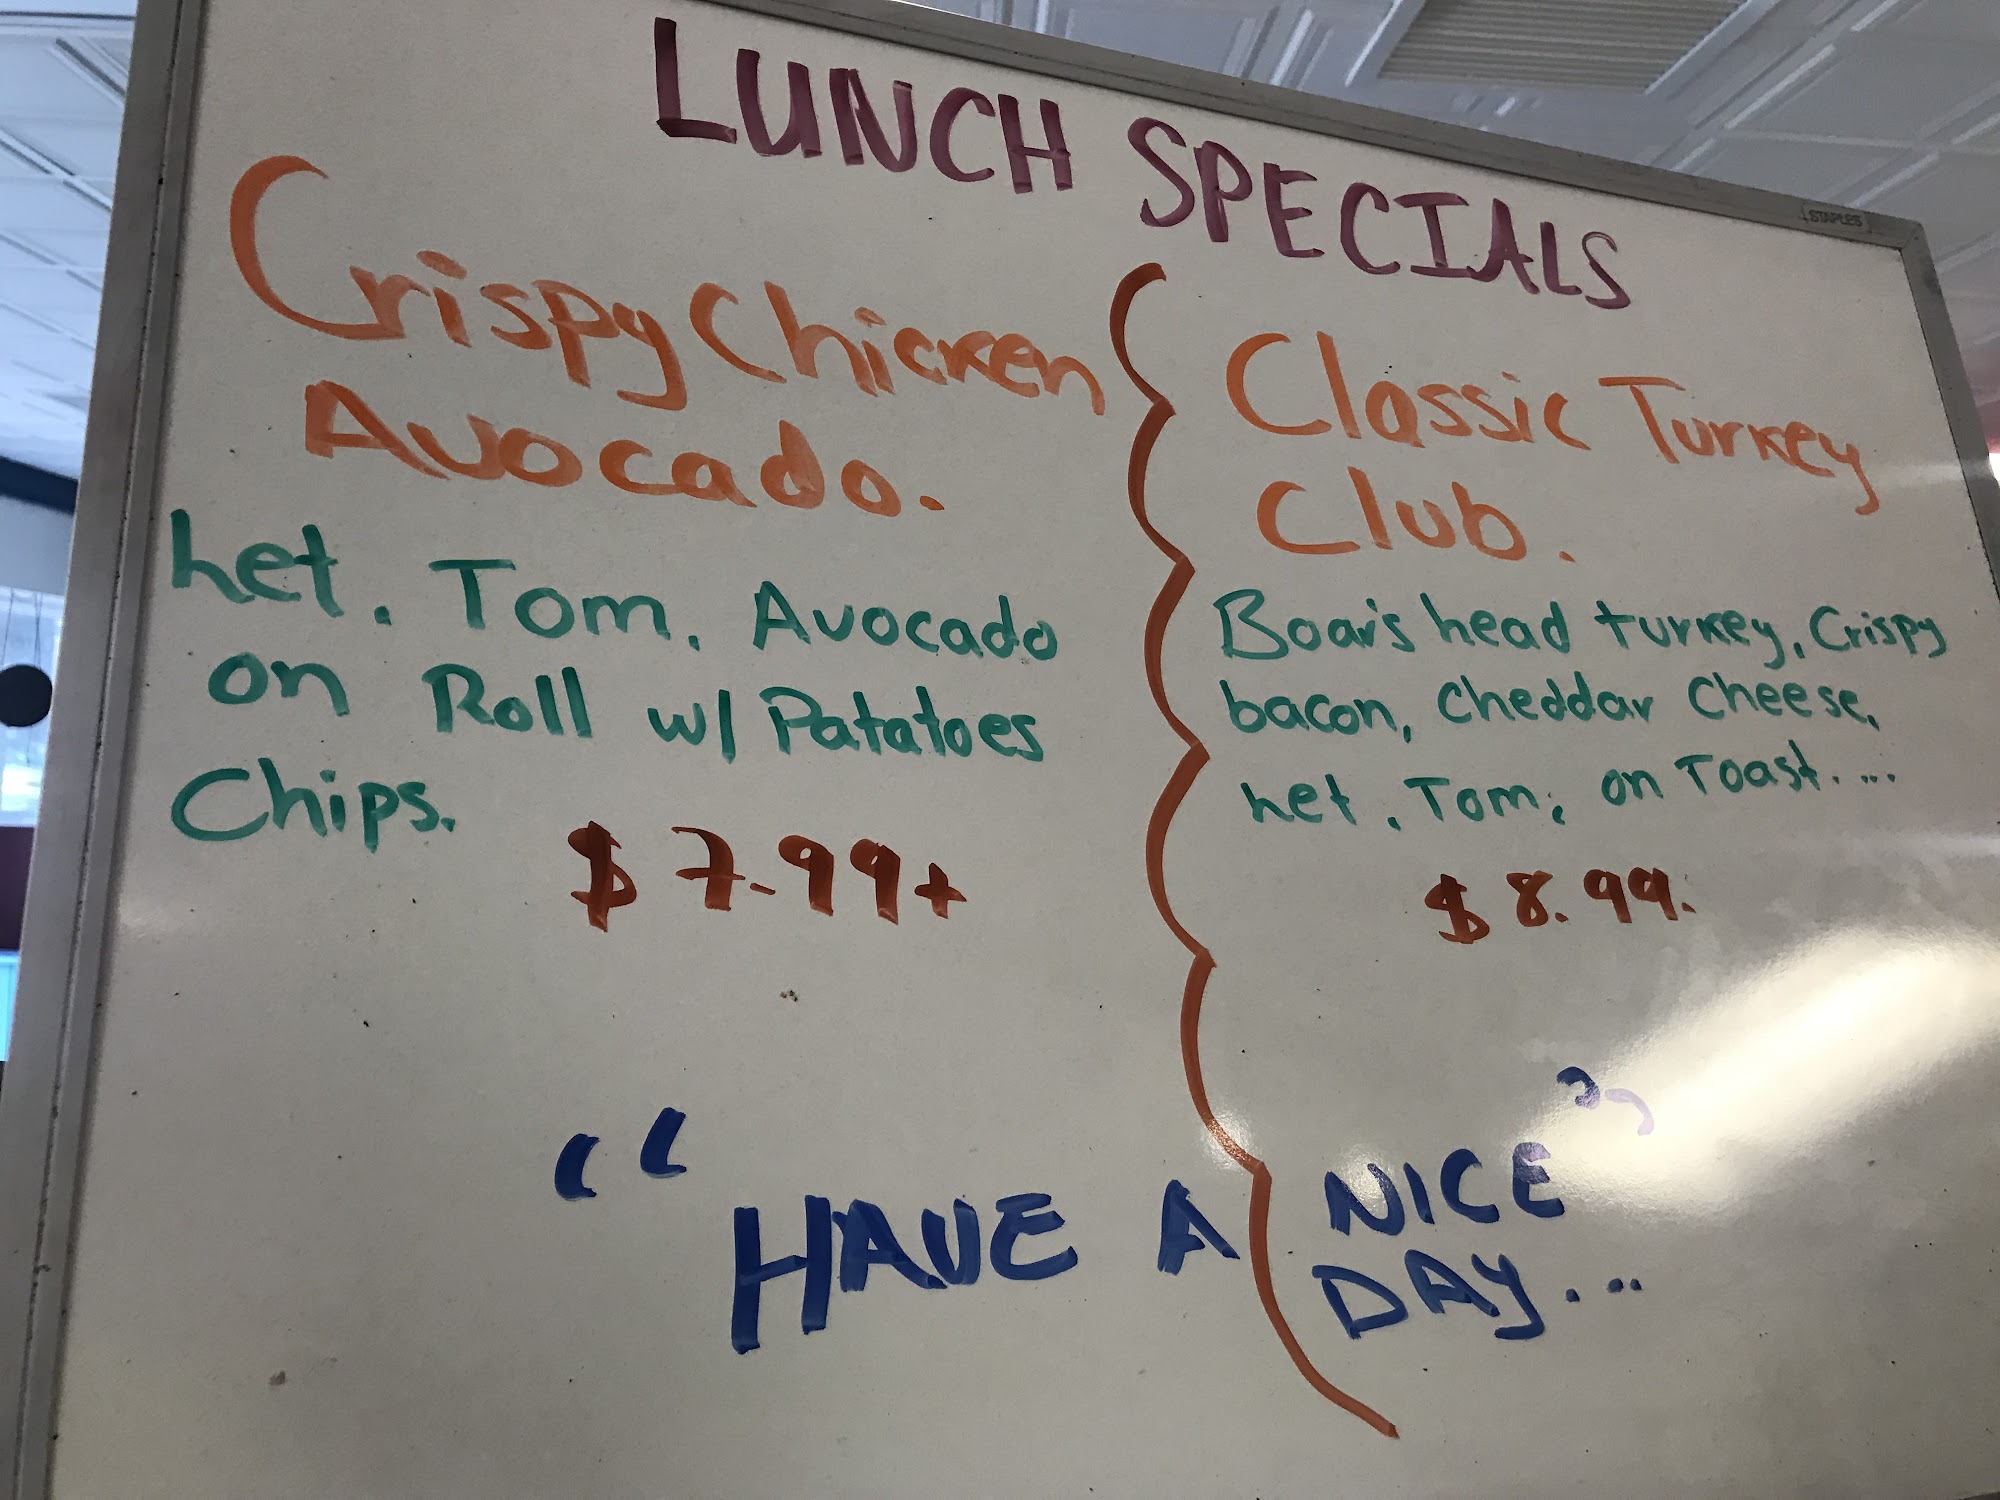 LUNCH SPECIALS
STAPLES
Crispy Chicken
Avocado.
Let. Tom. Avocado
on Roll w/ Patatoes
Chips.
$7.99+
Classic Turkey
Club.
Boar's head turkey, Crispy
bacon, Cheddar Cheese,
Let. Tom, on Toast....
$8.99.
“HAVE A NICE”
DAY...